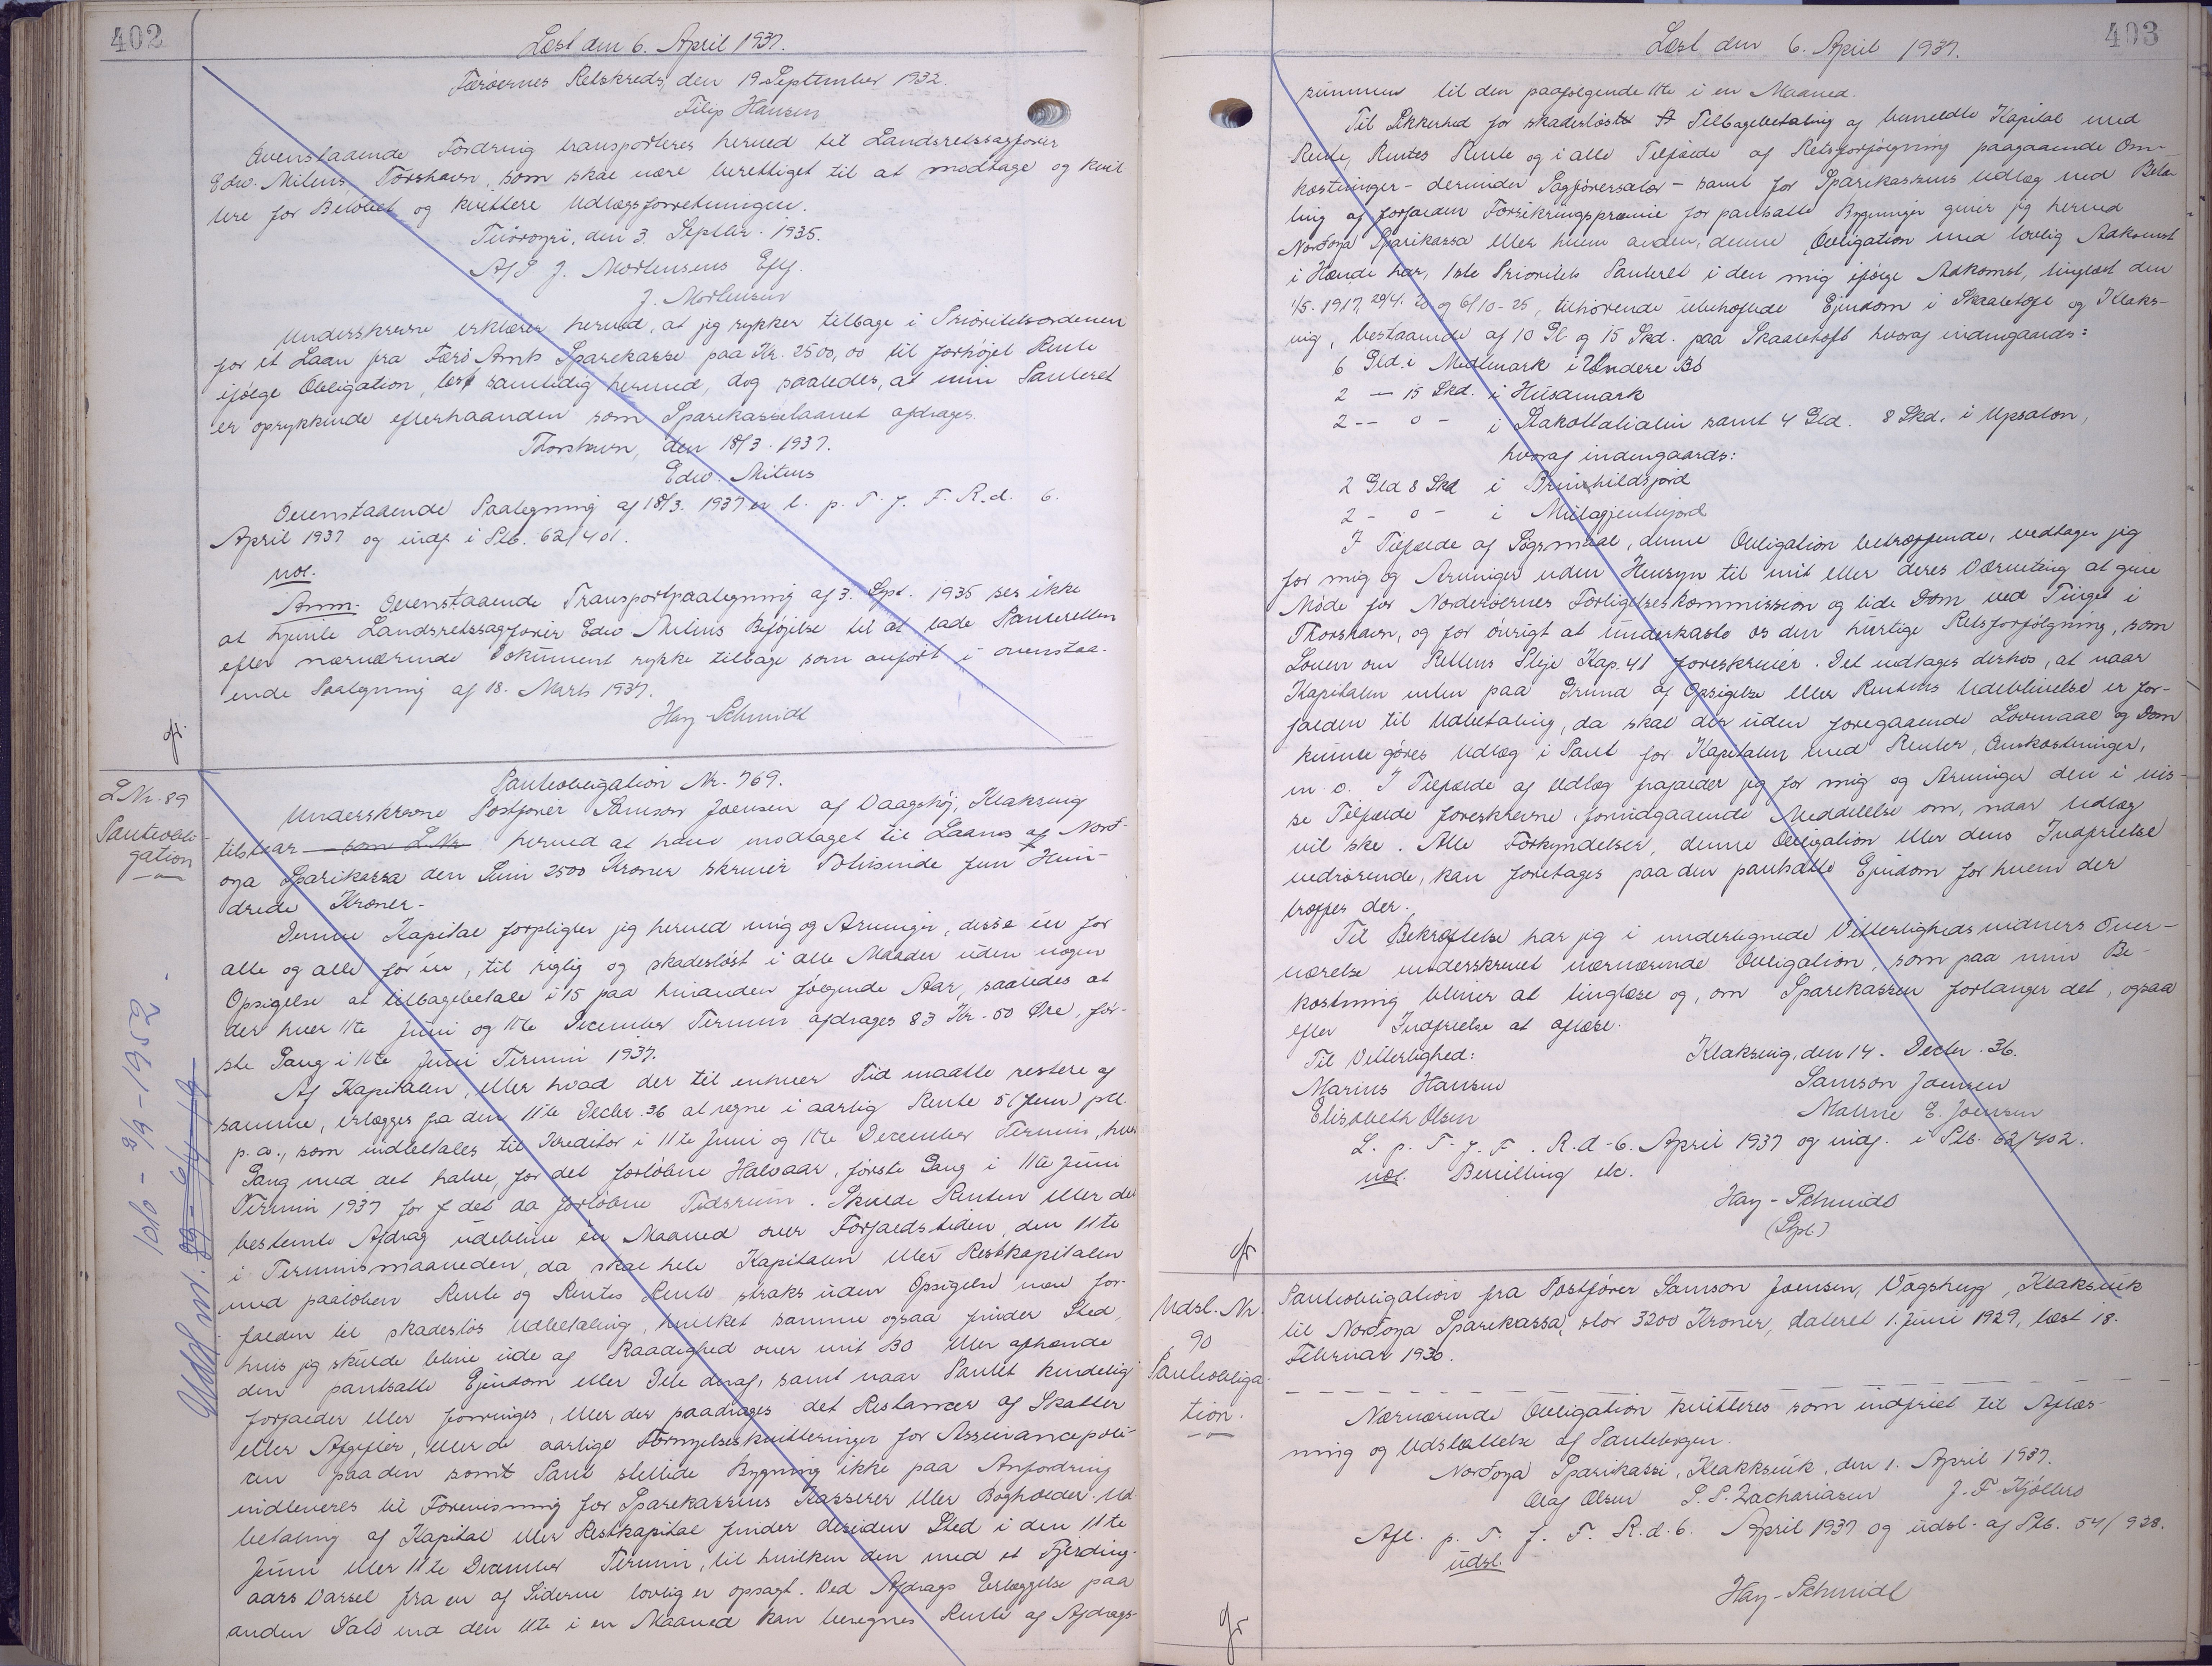 402
Læst den 6. April 1937.
Færøernes Retskreds, den 19 September 1932.
Filip Hansen
Ovenstaaende Fordring transporteres herved til Landsretssagfører
Edw. Mitens, Torshavn, som skal være berettiget til at modtage og kvit
tere for Beløbet og kvittere Udlægsforretningen.
Tvøroyri, den 3. Septbr. 1935.
A/S J. Mortensens Eftf.
J. Mortensen
Underskrevne erklærer herved, at jeg rykker tilbage i Prioritetsordenen
for et Laan fra Færø Amts Sparekasse paa Kr. 2500,00 til forhøjet Rente
ifølge Obligation, læst samtidig hermed, dog saaledes, at min Panteret
er oprykkende efterhaanden som Sparekasselaanet afdrages.
Thorshavn, den 18/3. 1937.
Edw. Mitens
Ovenstaaende Paategning af 18/3. 1937 er l. p. T. f. F. R. d. 6.
April 1937 og indf. i Ptb. 62/401.
not.
Anm. Ovenstaaende Transportpaategning af 3. Spt. 1935 ses ikke
at hjemle Landsretssagfører Edw Mitens Beføjelse til at lade Panteretten
efter nærværende Dokument rykke tilbage som anført i ovenstaa-
ende Paategning af 18. Marts 1937.
Hay-Schmidt
L Nr. 89
Panteobli-
gation
Panteobligation Nr. 769.
Underskrevne Postfører Samson Joensen af Vaagshøj, Klaksvig
tilstaar som L.Nr. herved at have modtaget til Laans af Nord-
oya Sparikassa den Sum 2500 Kroner skriver Totusinde fem Hun-
drede Kroner.-
Denne Kapital forpligter jeg herved mig og Arvinger, disse én for
alle og alle for én, til rigtig og skadesløst i alle Maader uden nogen
Opsigelse at tilbagebetale i 15 paa hinanden følgende Aar, saaledes at
der hver 11te Juni og 11te December Termin afdrages 83 Kr. 50 Øre, før-
ste Gang i 11te Juni Termin 1937.
Af Kapitalen, eller hvad der til enhver Tid maatte restere af
samme, erlægges fra den 11te Decbr. 36 at regne i aarlig Rente 5 (fem) pCt.
p. a., som indbetales til Kreditor i 11te Juni og 11te December Termin, hver
Gang med det halve, for det forløbne Halvaar, første Gang i 11te Juni
Termin 1937 for f det da forløbne Tidsrum. Skulde Renten eller det
bestemte Afdrag udeblive én Maaned over Forfaldstiden, den 11te
i Terminsmaaneden, da skal hele Kapitalen eller Restkapitalen
med paaløben Rente og Rentes Rente straks uden Opsigelse være for-
falden til skadesløs Udbetaling, hvilket samme ogsaa finder Sted,
hvis jeg skulde blive ude af Raadighed over mit Bo eller afhænde
den pantsatte Ejendom eller Dele deraf, samt naar Pantet kendelig
forfalder eller forringes, eller der paadrages det Restancer af Skatter
eller Afgifter, eller de aarlige Fornyelseskvitteringer for Assurancepoli-
cen paa den somt Pant stillede Bygning ikke paa Anfordring
indleveres til Forevisning for Sparekassens Kasserer eller Bogholder. Ud-
betaling af Kapital eller Restkapital finder desuden Sted i den 11te
Juni eller 11te December Termin, til hvilken den med et Fjerding-
aars Varsel fra en af Siderne lovlig er opsagt. Ved Afdrags Erlæggelse paa
anden Dato end den 11te i en Maaned kan beregnes Rente af Afdrags-
Udsl. nr. 89 - 6/4 - 19
1010 - 9/9 - 1952.
403
Læst den 6. April 1937.
summen til den paafølgende 11te i en Maaned.
Til Sikkerhed for skadesløst Tilbagebetaling af bemeldte Kapital med
Rente, Rentes Rente og i alle Tilfælde af Retsforfølgning paagaaende Om-
kostninger - derunder Sagførersalær - samt for Sparekassens Udlæg ved Beta-
ling af forfalden Forsikringspræmie for pantsatte Bygninger giver jeg herved
Nordoya Sparikassa eller hvem anden, denne Obligation med lovlig Adkomst
i Hænde har, 1ste Prioritets Panteret i den mig ifølge Adkomst, tinglæst den
1/5. 1917, 29/4. 20 og 6/10-25, tilhørende ubehæftede Ejendom i Skaaletoft og Klaks-
vig, bestaaende af 10 Gl og 15 Skd. paa Skaaletoft hvoraf indengaards:
6 Gld. i Midlmark i Undere Bø
2 — 15 Skd. i Húsamark
2 -- 0 - i Stakottalialin samt 4 Gld. 8 Skd. i Upsalon,
hvoraf indengaards:
2 Gld 8 Skd i Brunhildsjord
2 - 0 - i Mulagjentujord
I Tilfælde af Søgsmaal, denne Obligation betræffende, vedtager jeg
for mig og Arvinger uden Hensyn til mit eller deres Værneting at give
Møde for Norderøernes Forligelseskommission og lide Dom ved Tinget i
Thorshavn, og for øvrigt at underkaste os den hurtige Retsforfølgning, som
Loven om Rettens Pleje Kap. 41 foreskriver. Det vedtages derhos, at naar
Kapitalen enten paa Grund af Opsigelse eller Rentens Udeblivelse er for-
falden til Udbetaling, da skal der uden foregaaende Lovmaal og Dom
kunne gøres Udlæg i Pant for Kapitalen med Renter, Omkostninger,
m. v. I Tilfælde af Udlæg frafalder jeg for mig og Arvinger den i vis-
se Tilfælde foreskrevne forudgaaende Meddelelse om, naar Udlæg
vil ske. Alle Forkyndelser, denne Obligation eller dens Indfrielse
vedrørende, kan foretages paa den pantsatte Ejendom for hvem der
træffes der.
Til Bekræftelse har jeg i undertegnede Vitterlighedsvidners Over-
værelse underskrevet nærværende Obligation, som paa min Be-
kostning bliver at tinglæse og, om Sparekassen forlanger det, ogsaa
efter Indfrielse at aflæse.
Til Vitterlighed: Klaksvig, den 14. Decbr. 36.
Marius Hansen Samson Joensen
Elisabeth Olsen Malene E. Joensen
L. p. T. f. F. R. d. 6. April 1937 og indf. i Ptb. 62/402.
not. Bevilling etc.
Hay-Schmidt
(Stpl.)
Udsl. Nr.
90
Panteobliga
tion.
Panteobligation fra Postfører Samson Joensen, Vágshugg, Klaksvik
til Nordoya Sparekassa, stor 3200 Kroner, dateret 1. Juni 1929, læst 18.
Februar 1930.
Nærværende Obligation kvitteres som indfriet til Aflæs-
ning og Udslettelse af Pantebogen.
Nordoya Sparikassi, Klakksvik, den 1. April 1937.
Olaf Olsen P. P. Zachariasen J. F. Kjølbro
Afl. p. T. f. F. R. d. 6. April 1937 og udsl. af Ptb. 54/928.
udsl.
Hay-Schmidt